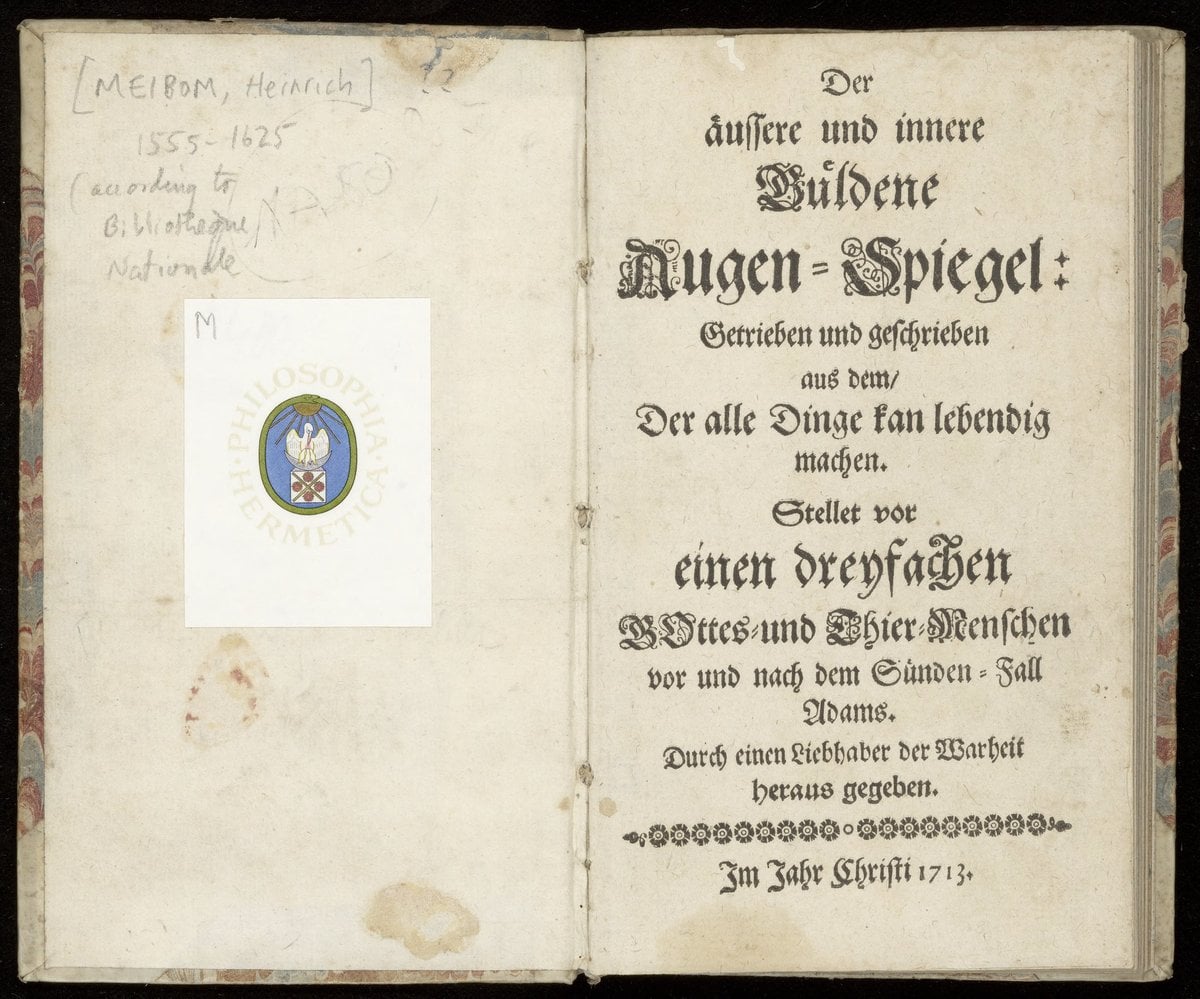 [MEIBOM, Heinrich] ??
1555-1625
(according to
Bibliotheque
Nationale
M
·PHILOSOPHIA·
HERMETICA
Der
äuſſere und innere
Guͤldene
Augen-Spiegel:
Getrieben und geſchrieben
aus dem/
Der alle Dinge kan lebendig
machen.
Stellet vor
einen dreyfachen
GOttes-und Thier-Menſchen
vor und nach dem Sünden-Fall
Adams.
Durch einen Liebhaber der Warheit
heraus gegeben.
Im Jahr Chriſti 1713.